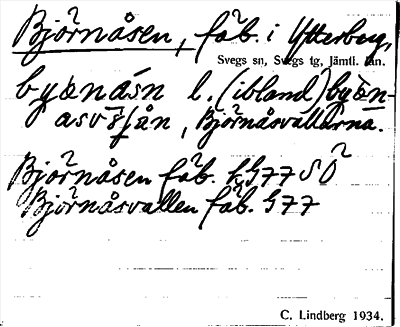 Björnåsen, fäb. i Ytterberg,
Svegs sn, Svegs tg, Jämtl. län.
byònásn l. (ibland) byòn-
Björnåsvallarna.
Björnåsen fäb. G77 SÖ
Björnåsvallen fäb. G77
C. Lindberg 1934.